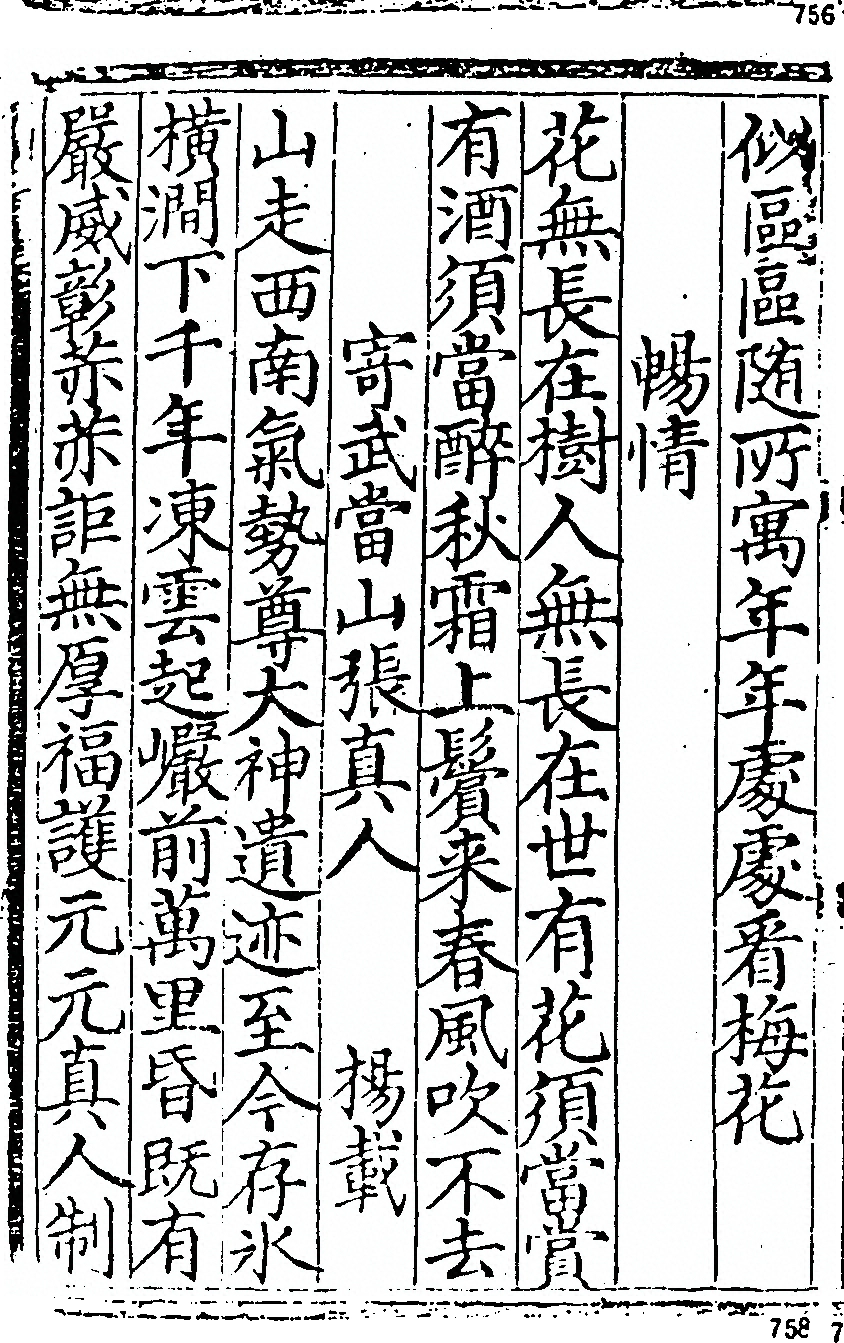 756
似區區随所寓年年處處看梅花
暢情
花無長在樹人無長在世有花須當賞
有酒須當醉秋霜上鬢来春風吹不去
寄武當山張真人 楊載
山走西南氣勢尊大神遺迹至今存氷
橫澗下千年凍雲起巗前萬里昏既有
嚴威彰赫赫詎無厚福護元元真人制
758
7